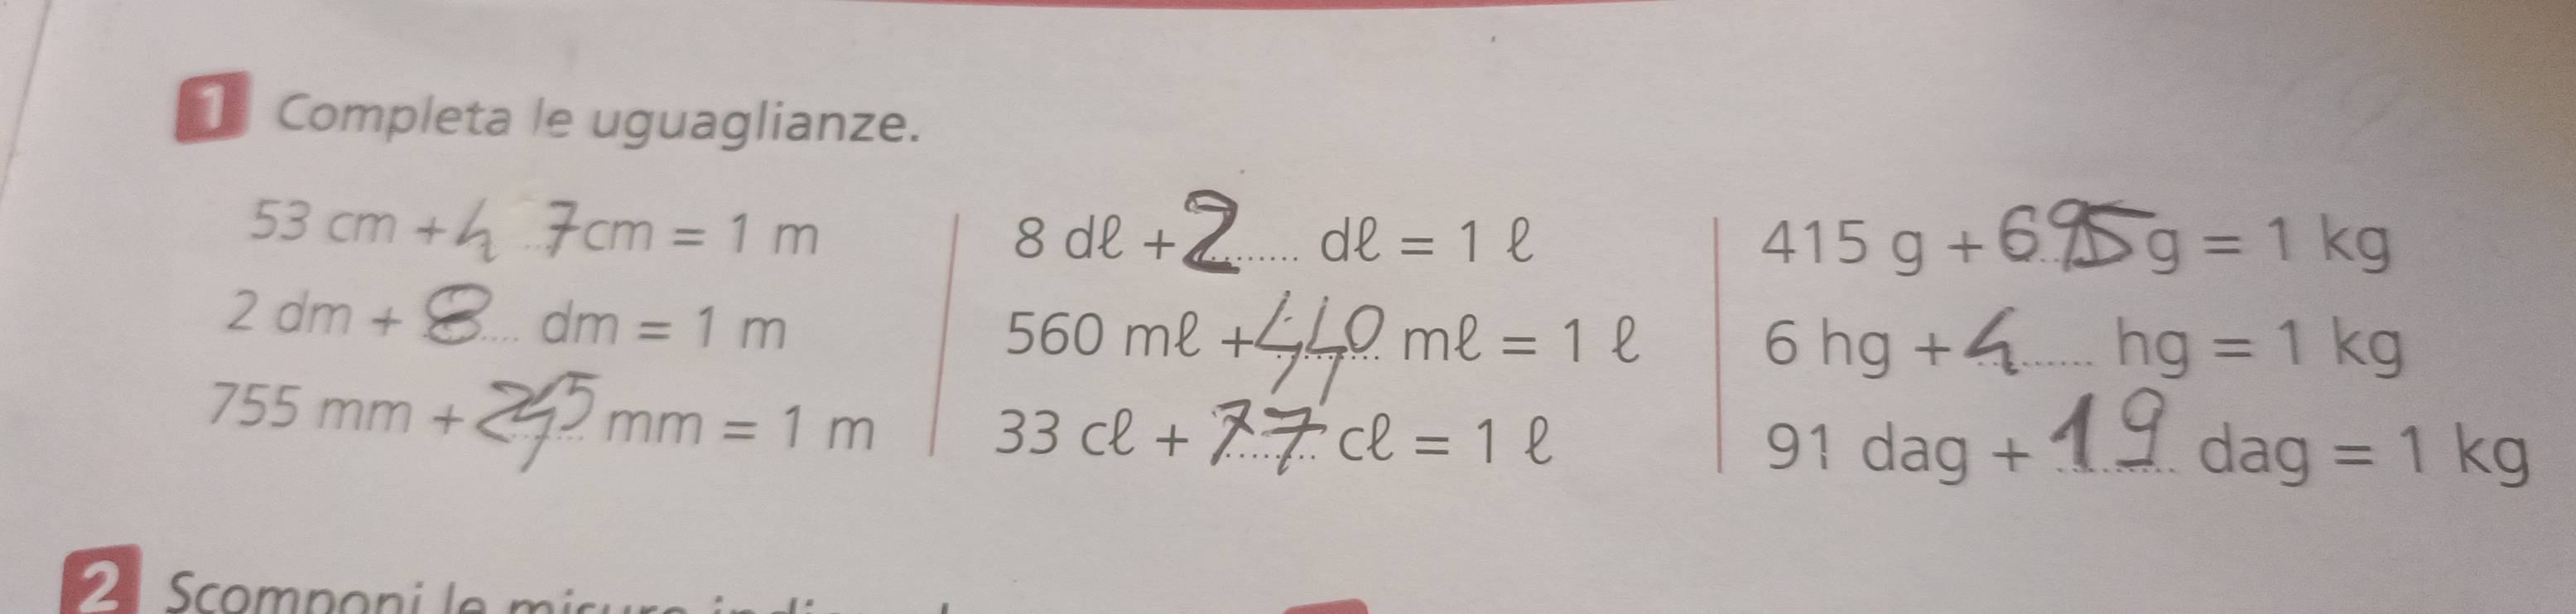 1 Completa le uguaglianze.
53 cm + 47 cm = 1 m
2 dm + 8 dm = 1 m
755 mm + 245 mm = 1 m
8 dℓ + 2 dℓ = 1 ℓ
560 mℓ + 440 mℓ = 1 ℓ
33 cℓ + 77 cℓ = 1 ℓ
415 g + 695 g = 1 kg
6 hg + 4 hg = 1 kg
91 dag + 19 dag = 1 kg
2 Scomponi le misure